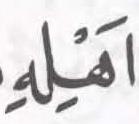 اَهْلِهٖ